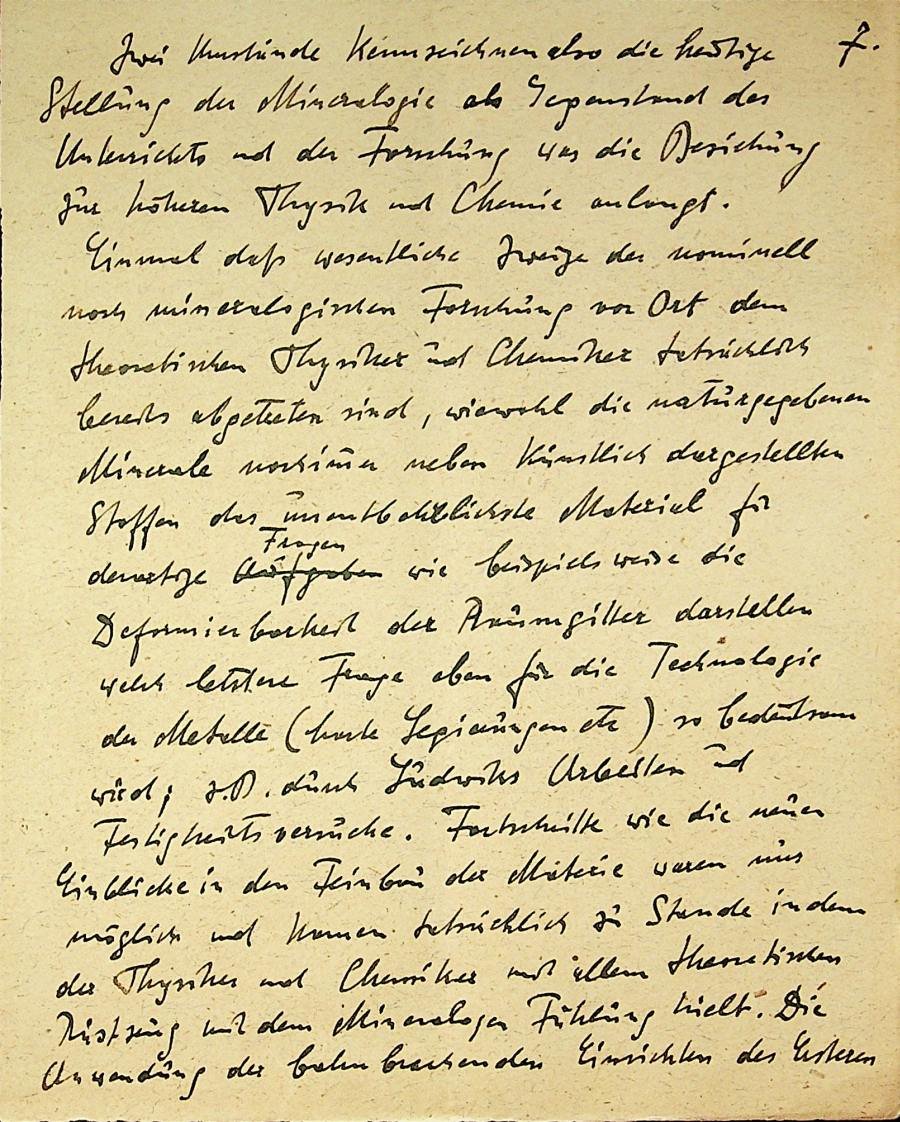 7.
Zwei Umstände kennzeichnen also die heutige
Stellung der Mineralogie als Gegenstand des
Unterrichts und der Forschung was die Beziehung
zur höheren Physik und Chemie anlangt.
Einmal daß wesentliche Zweige der nominell
noch mineralogischen Forschung vor Ort dem
theoretischen Physiker und Chemiker tatsächlich
bereits abgetreten sind, wiewohl die naturgegebenen
Minerale noch immer neben künstlich dargestellten
Stoffen das unentbehrlichste Material für
Fragen
derartige Aufgaben wie beispielsweise die
Deformierbarkeit der Raumgitter darstellen
welch letztere Frage eben für die Technologie
der Metalle (harte Legierungen etc) so bedeutsam
wird; z.B. durch Ludwiks Arbeiten und
Festigkeitsversuche. Fortschritte wie die neuen
Einblicke in den Feinbau der Materie waren nur
möglich und kamen tatsächlich zu Stande indem
der Physiker und Chemiker mit allem theoretischen
Rüstzeug mit dem Mineralogen Fühlung hielt. Die
Anwendung der bahnbrechenden Einsichten des Ersteren